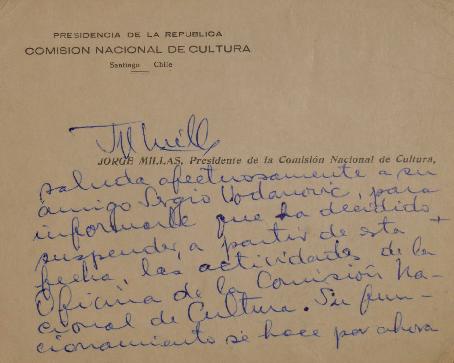 PRESIDENCIA DE LA REPUBLICA
COMISION NACIONAL DE CULTURA
Santiago Chile
JORGE MILLAS, Presidente de la Comisión Nacional de Cultura,
saluda afectuosamente a su
amigo Sergio Vodanovic, para
informarle que ha decidido
suspender, a partir de esta
fecha, las actividades de la
Oficina de la Comisión Na-
cional de Cultura. Su fun-
cionamiento se hace por ahora